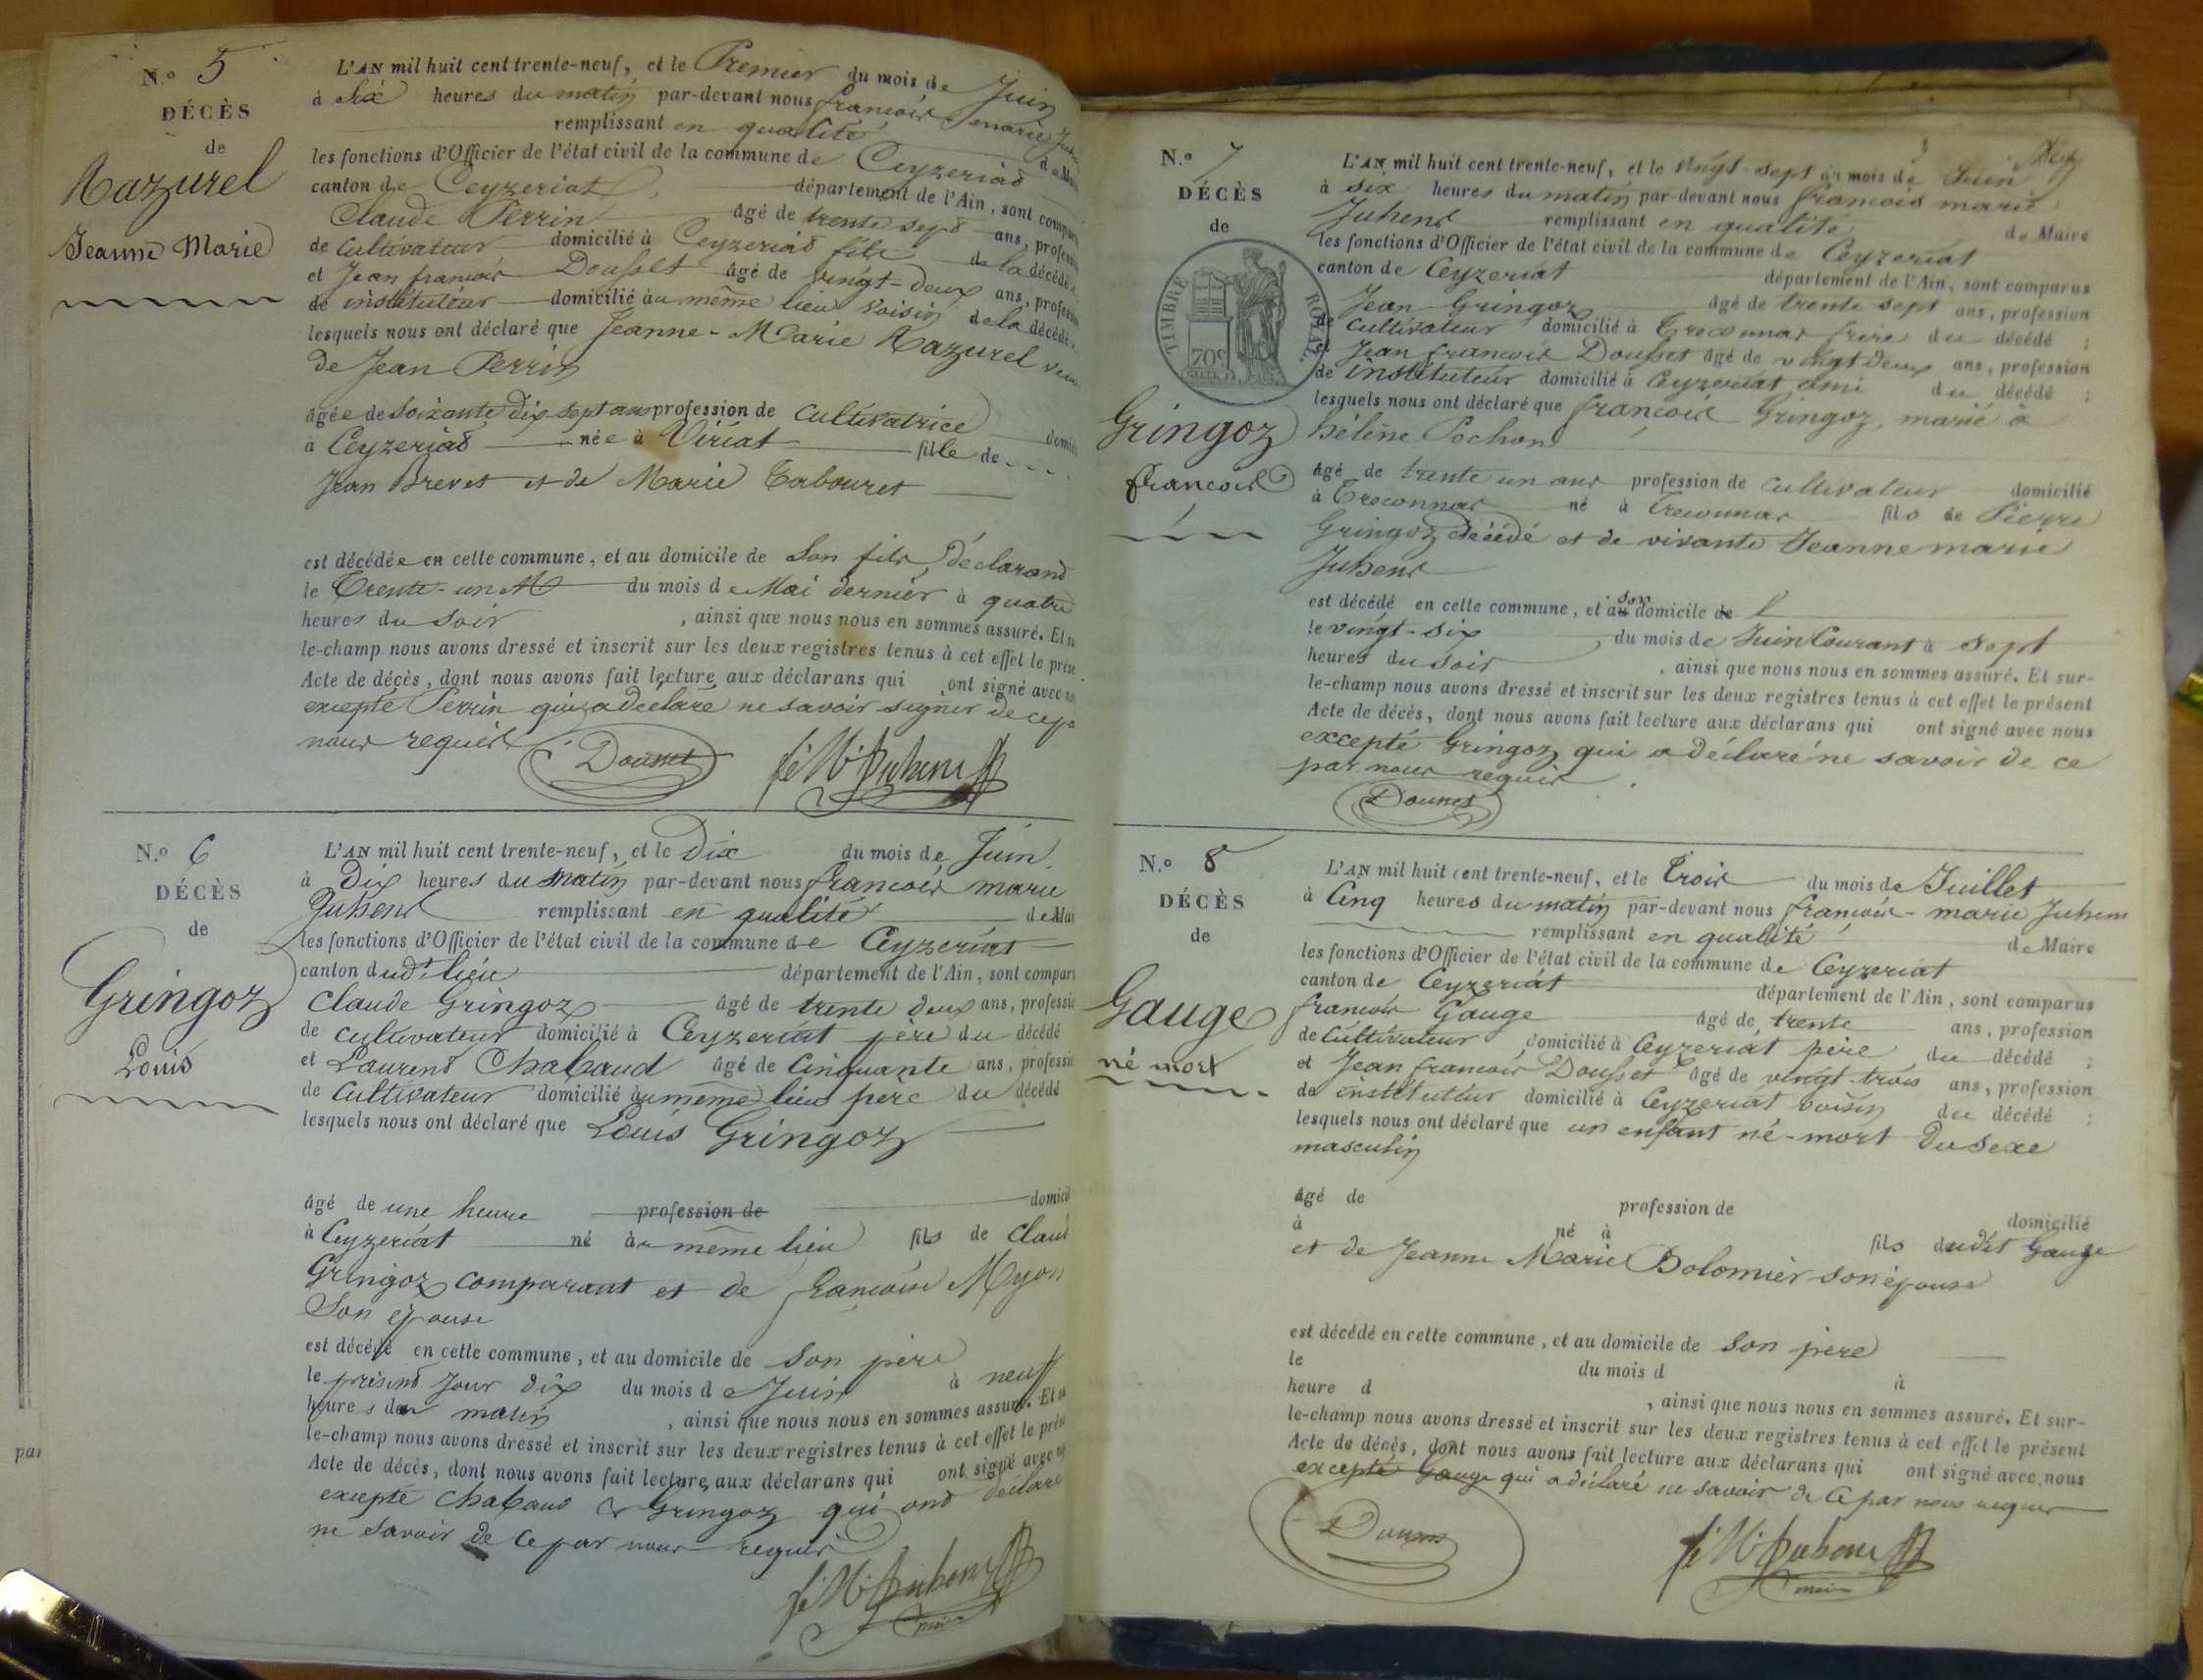 N.º 5
DÉCÈS
de
Razurel
Jeanne Marie
L'AN mil huit cent trente-neuf, et le Premier du mois de Juin
à Six heures du matin par-devant nous françois marie
remplissant en qualité de
les fonctions d'Officier de l'état civil de la commune de Ceyzeriat
canton de Ceyzeriat département de l'Ain, sont
Claude Perrin âgé de trente sept ans,
de Cultivateur domicilié à Ceyzeriat fils de la décédée
et Jean françois Dousset âgé de vingt-deux ans,
de instituteur domicilié au même lieu Voisin de la décédée
lesquels nous ont déclaré que Jeanne-Marie Razurel
De Jean Perrin
âgée de soixante dix sept ans profession de Cultivatrice
à Ceyzeriat née à Viriat fille de
Jean Brevet et de Marie Tabouret
est décédée en cette commune, et au domicile de Son fils Déclarant
le Trente-un du mois de Mai dernier à quatre
heures du Soir , ainsi que nous nous en sommes assuré. Et
le-champ nous avons dressé et inscrit sur les deux registres tenus à cet effet le
Acte de décès, dont nous avons fait lecture aux déclarans qui ont signé avec
excepté Perrin qui a déclaré ne savoir signer de ce
nous requis
Dousset f. M. Juhens
N.º 6
DÉCÈS
de
Gringoz
Louis
L'AN mil huit cent trente-neuf, et le Dix du mois de Juin
à Dix heures du matin par-devant nous françois marie
Juhens remplissant en qualité de
les fonctions d'Officier de l'état civil de la commune de Ceyzeriat
canton dudt lieu département de l'Ain, sont
Claude Gringoz âgé de trente deux ans,
de cultivateur domicilié à Ceyzeriat père du décédé
et Laurent Chabaud âgé de Cinquante ans,
de Cultivateur domicilié au même lieu père du décédé
lesquels nous ont déclaré que Louis Gringoz
âgé de une heure profession de
à Ceyzeriat né au même lieu fils de
Gringoz comparant et de françoise Myon
Son épouse
est décédé en cette commune, et au domicile de Son père
le présent Jour dix du mois de Juin à neuf
heures du matin , ainsi que nous nous en sommes assuré. Et
le-champ nous avons dressé et inscrit sur les deux registres tenus à cet effet le
Acte de décès, dont nous avons fait lecture aux déclarans qui ont signé avec
excepté Chabaud & Gringoz qui ont déclaré
ne savoir de ce par nous requis
f. M. Juhens
maire
N.º 7
DÉCÈS
de
TIMBRE ROYAL
70 c
Gringoz
françois
L'AN mil huit cent trente-neuf, et le vingt-sept du mois de Juin
à six heures du matin par-devant nous françois marie
Juhens remplissant en qualité de Maire
les fonctions d'Officier de l'état civil de la commune de Ceyzeriat
canton de Ceyzeriat département de l'Ain, sont comparus
Jean Gringoz âgé de trente sept ans, profession
de Cultivateur domicilié à Treconnas frère du décédé ;
et Jean françois Dousset âgé de vingt deux ans, profession
de instituteur domicilié à Ceyzeriat ami du décédé ;
lesquels nous ont déclaré que françois Gringoz, marié à
hélène Pochon
âgé de trente un ans profession de cultivateur domicilié
à Treconnas né à Treconnas fils de Pierre
Gringoz décédé et de vivante Jeanne marie
Juhens
est décédé en cette commune, et au son domicile de
le vingt-six , du mois de Juin Courant à sept
heures du soir , ainsi que nous nous en sommes assuré. Et sur-
le-champ nous avons dressé et inscrit sur les deux registres tenus à cet effet le présent
Acte de décès, dont nous avons fait lecture aux déclarans qui ont signé avec nous
excepté Gringoz qui a déclaré ne savoir de ce
par nous requis.
Dousset
N.º 8
DÉCÈS
de
Gauge
né mort
L'AN mil huit cent trente-neuf, et le Trois du mois de Juillet
à Cinq heures du matin par-devant nous françois-marie Juhens
remplissant en qualité de Maire
les fonctions d'Officier de l'état civil de la commune de Ceyzeriat
canton de Ceyzeriat département de l'Ain, sont comparus
françois Gauge âgé de trente ans, profession
de Cultivateur domicilié à Ceyzeriat père du décédé ;
et Jean françois Dousset âgé de vingt-trois ans, profession
de instituteur domicilié à Ceyzeriat voisin du décédé ;
lesquels nous ont déclaré que un enfant né-mort Du sexe
masculin
âgé de profession de domicilié
à né à fils dudit Gauge
et de Jeanne Marie Bolomier son épouse
est décédé en cette commune, et au domicile de son père
le du mois d à
heure d , ainsi que nous nous en sommes assuré. Et sur-
le-champ nous avons dressé et inscrit sur les deux registres tenus à cet effet le présent
Acte de décès, dont nous avons fait lecture aux déclarans qui ont signé avec nous
excepté Gauge qui a déclaré ne savoir de ce par nous requis
Dousset f. M. Juhens
maire